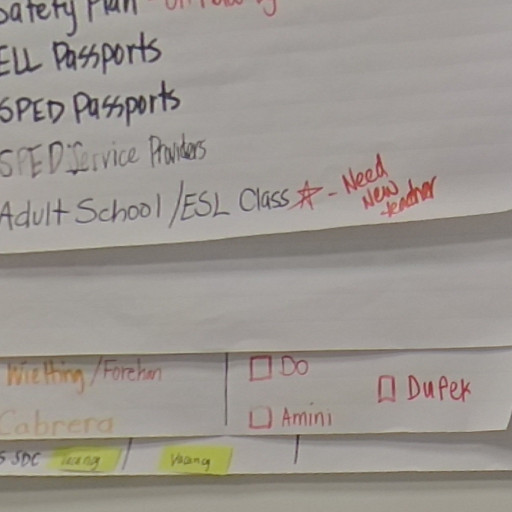 Safety Plan -
ELL Passports
SPED Passports
SPED Service Providers
Adult School/ESL Class ☆ - Need New teacher
☐ Do
☐ Dupek
Cabrera ☐ Amini
SDC